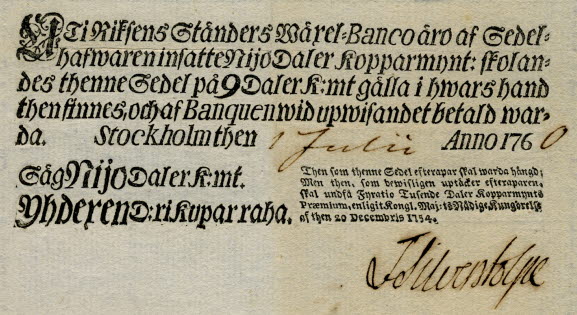 Uti Riksens Ständers Wäxel-Banco äro af Sedel-
hafwaren insatte Nijo Daler Kopparmynt: skolan-
des thenne Sedel på 9 Daler K:mt gälla i hwars hand
then finnes, och af Banquen wid upwisandet betald war-
da. Stockholm then 1 Julii Anno 1760
Säg Nijo Daler K:mt.
Yhdexen D:ri Kupar raha.
Then som thenne Sedel efterapar skal warda hängd;
Men then, som bewisligen uptäcker efteraparen,
skal undfå Fyratio Tusende Daler Kopparmynts
Præmium, enligit Kongl. Maj:ts Nådige Kungörelse
af then 20 Decembris 1754.
J Silverstolpe